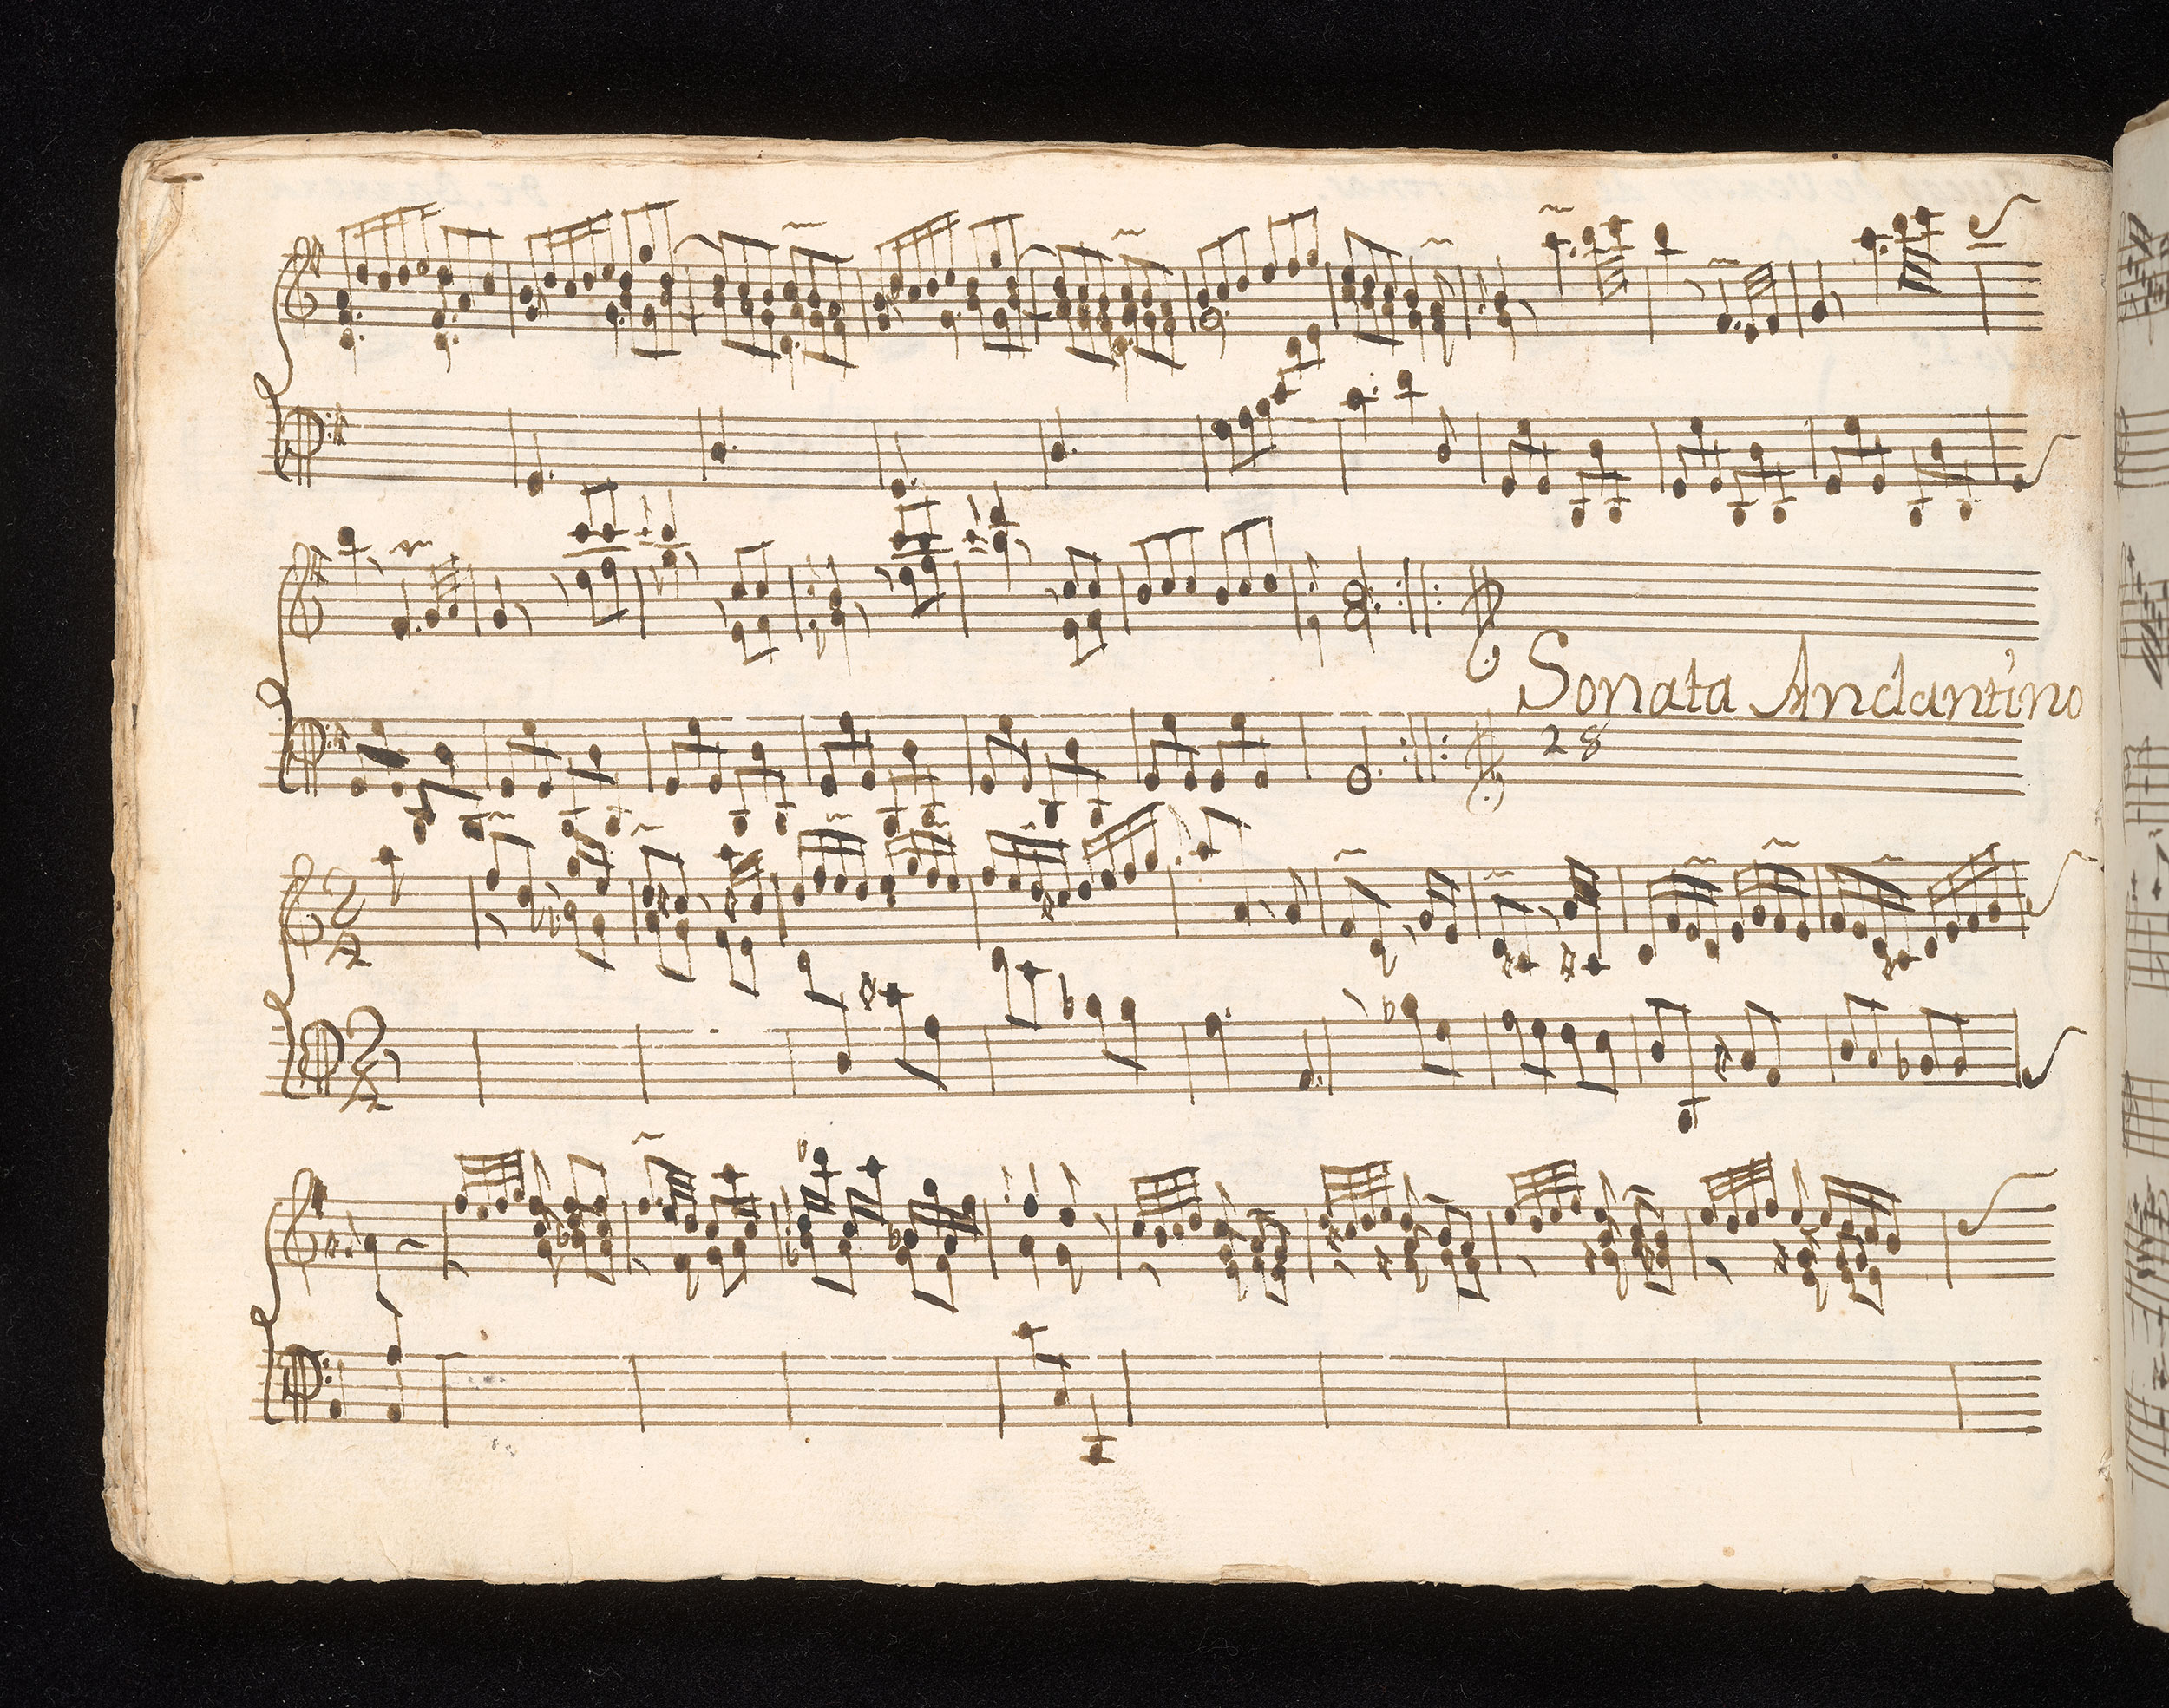 Sonata Andantino
28